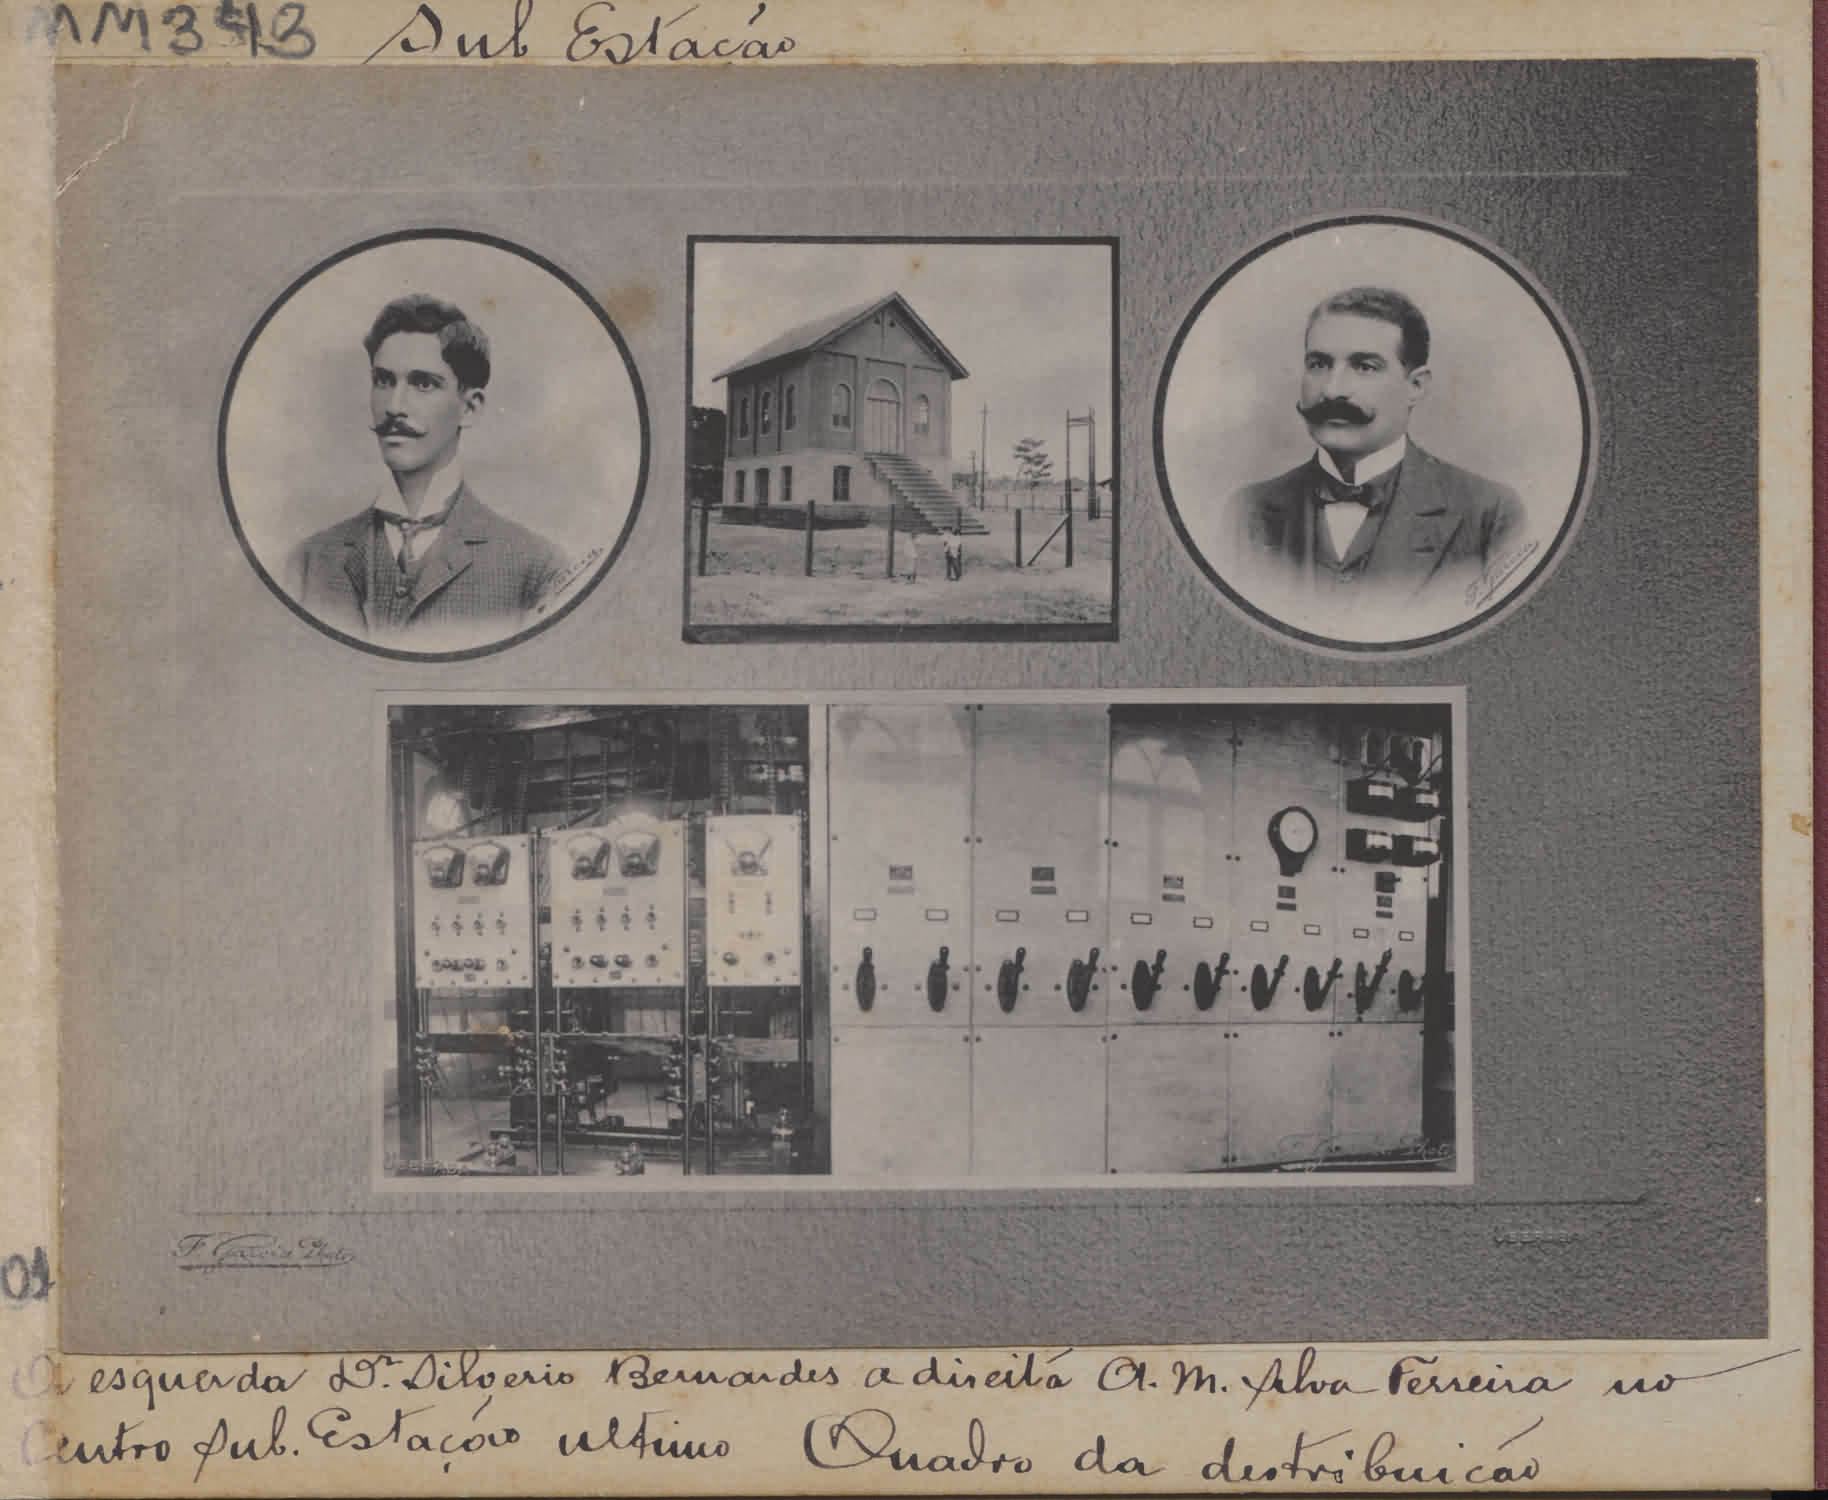 MM343 Sub Estação
Garcia
F. Garcia
F. Garcia Photo
UBERABA
F. Garcia Photo
UBERABA
01
A esquerda Dr. Silverio Bernardes a direitá A. M. Silva Ferreira no
Centro Sub. Estação ultimo Quadro da destribuicão